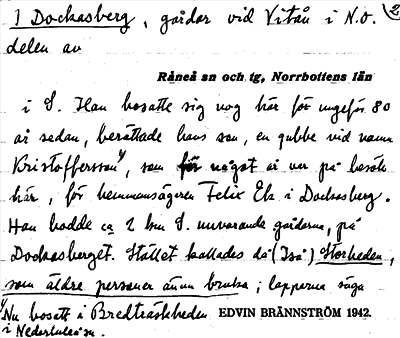 1 Dockasberg, gårdar vid Vitån i N.O. 2
delen av
Råneå sn och tg, Norrbottens län
i S. Han bosatte sig nog här för ungefär 80
år sedan, berättade hans son, en gubbe vid namn
Kristoffersson¹⁾, som för något år var på besök
här, för hemmansägaren Felix Ek i Dockasberg.
Han bodde ca 2 km S. nuvarande gårdarna, på
Dockasberget. Stället kallades då Storheden,
som äldre personer ännu bruka; lapparna säga
¹⁾ Nu bosatt i Bredträskheden EDVIN BRÄNNSTRÖM 1942.
i Nederluleå sn.